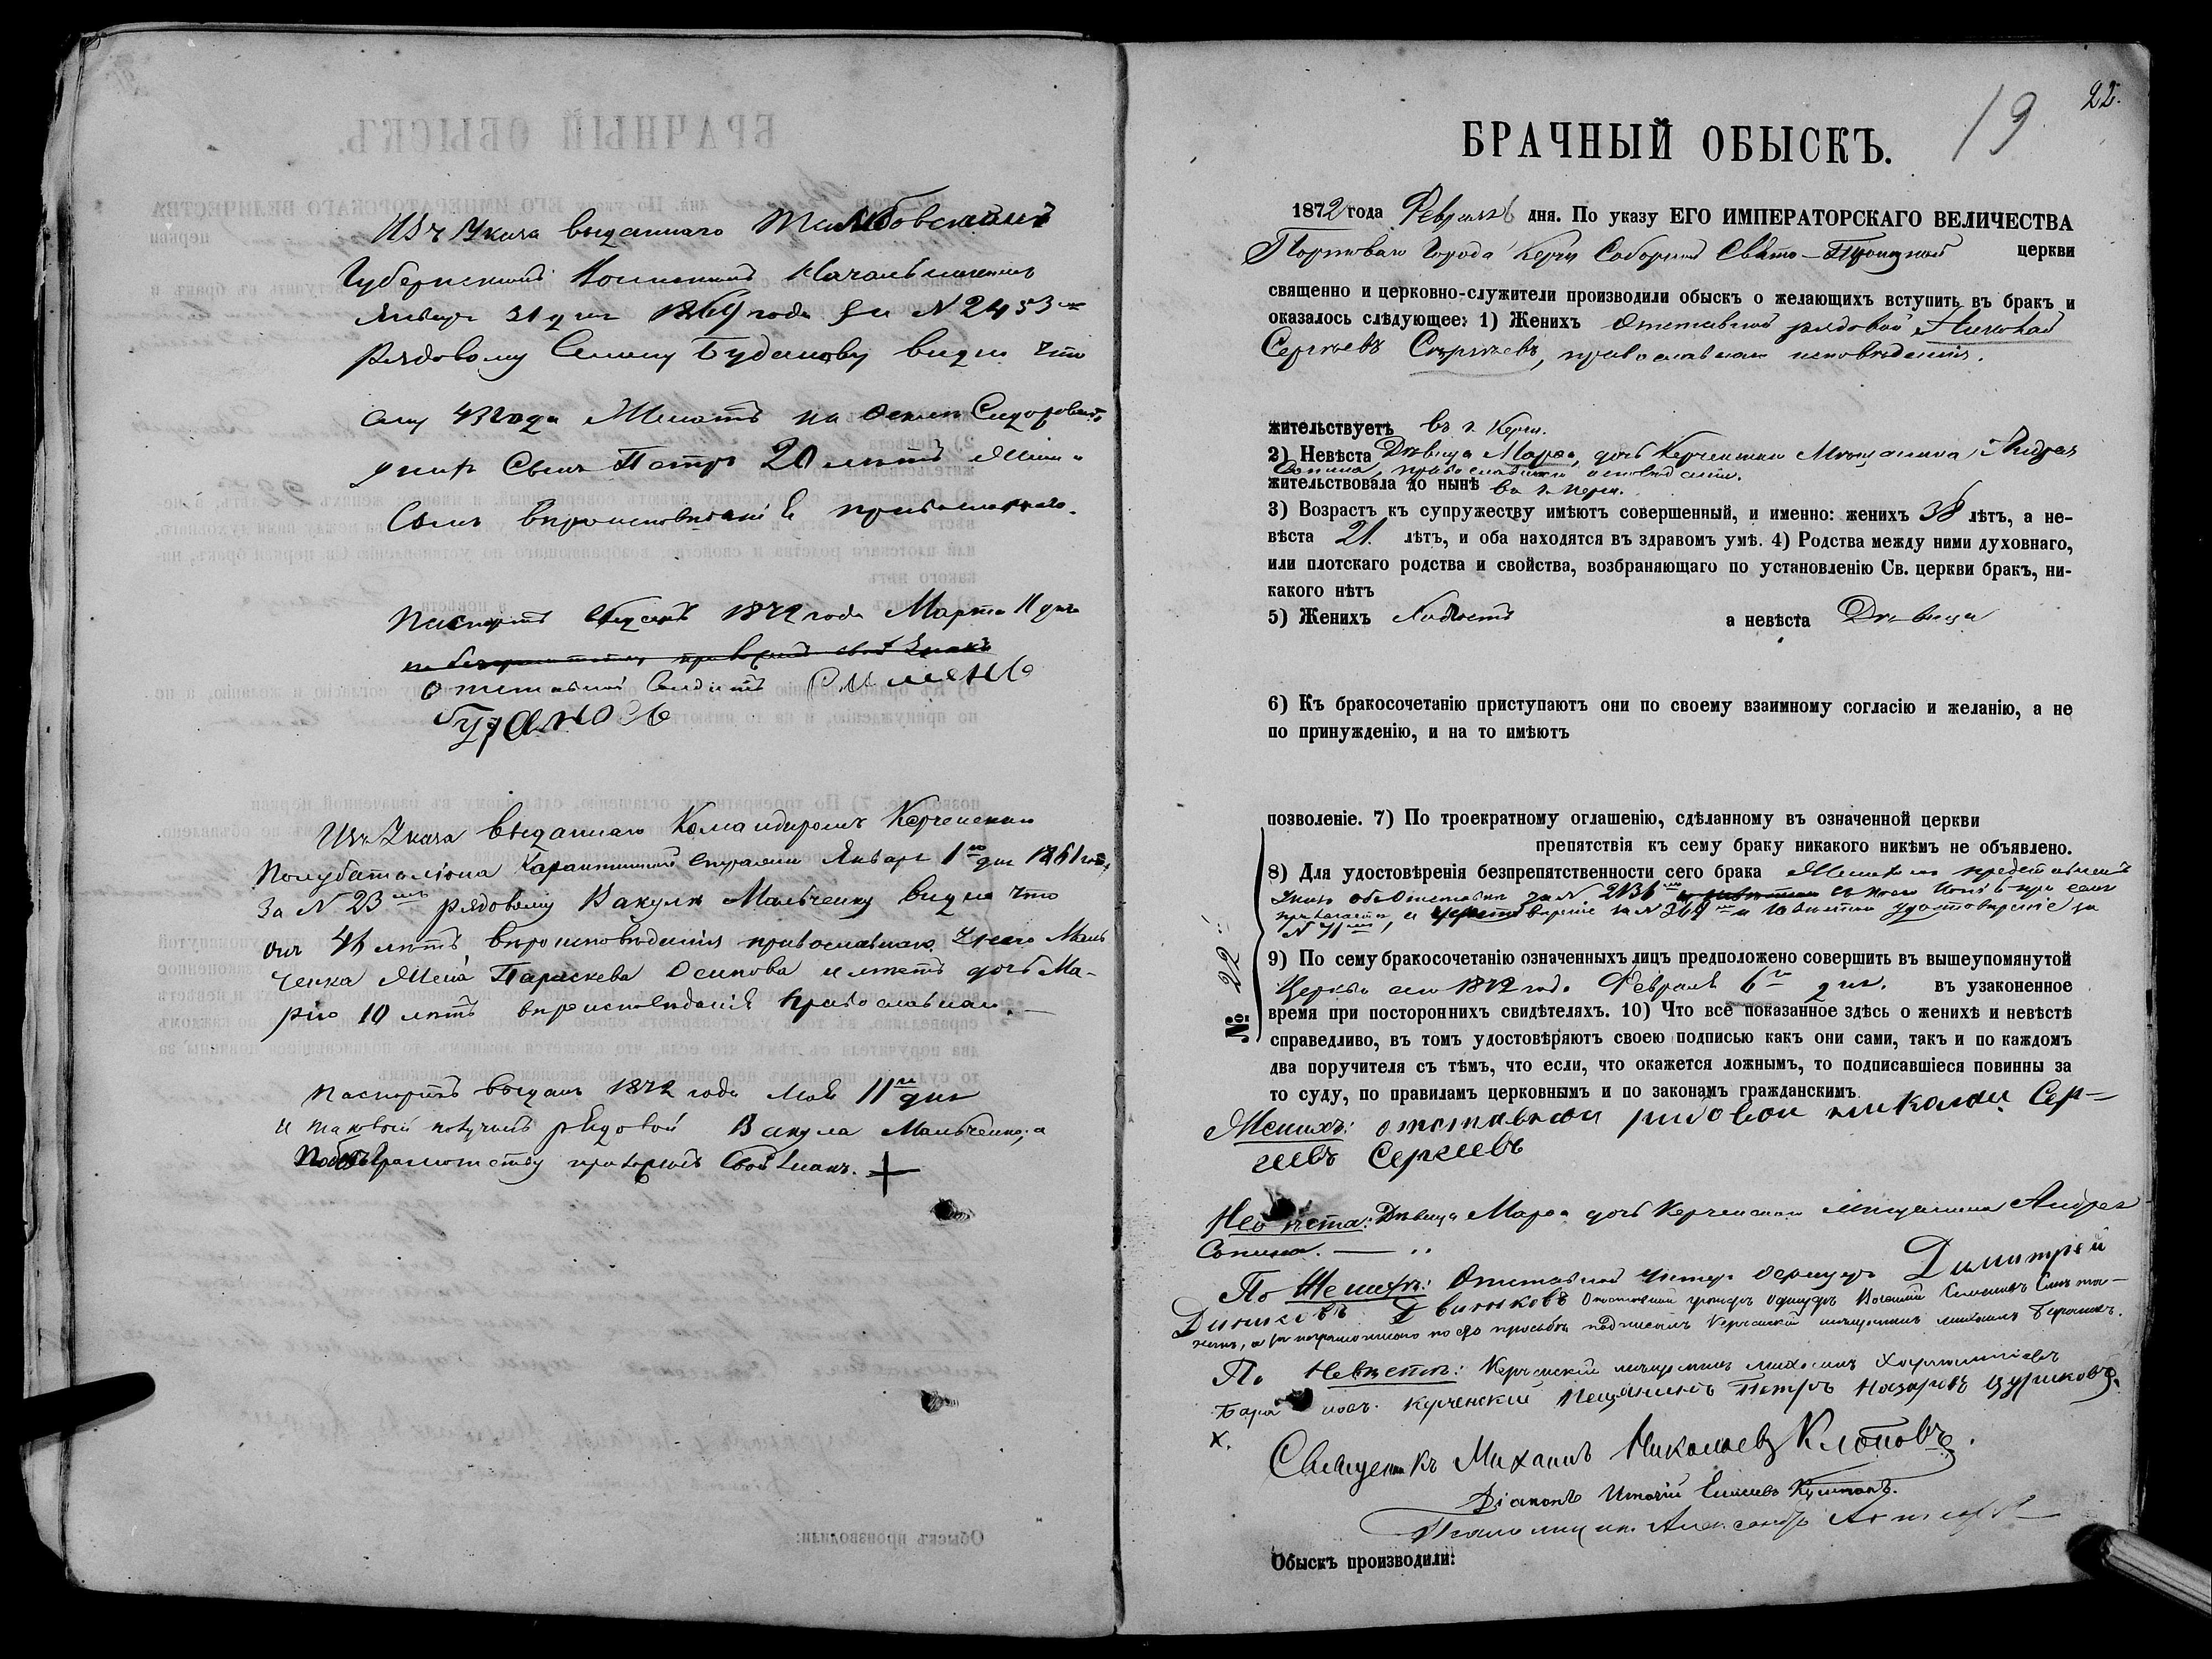 Изъ Указа выданнаго Тамбовскимъ
Губернскимъ Воинскимъ Начальникомъ
Января 31 дня 1869 года За № 2453
рядовому Семену Буданову видно что
ему 43 года Женатъ на Сидоровой
у нихъ Сынъ Петръ 20 летъ
Семь вероисповеданія православнаго.
Паспортъ выданъ 1872 года Марта 11 дня
Отставной Солдатъ Семенъ
Будановъ
Изъ Указа выданнаго Командиромъ Керченскаго
Полубаталіона Карантинной Стражи Января 1го дня 1861 года
За № 23 рядовому Вакуле Мальченку видно что
онъ 46 летъ вероисповеданія православнаго. У него Маль
ченка Жена Параскева Осипова и имеетъ дочь Ма-
рію 10 летъ вероисповеданія православнаго.—
Паспортъ выданъ 1872 года Мая 11го дня
и таковой получилъ рядовой Вакула Мальченко, а
по безграмотству приложилъ Свой знакъ. +
22.
19
БРАЧНЫЙ ОБЫСКЪ.
1872 года Февраля 6 дня. По указу ЕГО ИМПЕРАТОРСКАГО ВЕЛИЧЕСТВА
Портоваго Города Керчи Соборной Свято-Троицкой церкви
священно и церковно-служители производили обыскъ о желающихъ вступить въ бракъ и
оказалось слѣдующее: 1) Женихъ Отставной рядовой Николай
Сергѣевъ Сергѣевъ, православнаго исповѣданія.
жительствуетъ въ г. Керчи.
2) Невѣста Дѣвица Марѳа, дочь Керченскаго Мѣщанина Андрея
Сопина, православнаго исповѣданія.
жительствовала до нынѣ въ г. Керчи.
3) Возрастъ къ супружеству имѣютъ совершенный, и именно: женихъ 38 лѣтъ, а не-
вѣста 21. лѣтъ, и оба находятся въ здравомъ умѣ. 4) Родства между ними духовнаго,
или плотскаго родства и свойства, возбраняющаго по установленію Св. церкви бракъ, ни-
какого нѣтъ
5) Женихъ Холостъ а невѣста Дѣвица
6) Къ бракосочетанію приступаютъ они по своему взаимному согласію и желанію, а не
по принужденію, и на то имѣютъ
позволеніе. 7) По троекратному оглашенію, сдѣланному въ означенной церкви
препятствія къ сему браку никакого никѣмъ не объявлено.
8) Для удостовѣренія безпрепятственности сего брака Женихъ представилъ
Указъ объ Отставкѣ за № 2131 съ коего копія при семъ
прилагается, и за № 369 и удостовѣреніе за
№
№ 22
9) По сему бракосочетанію означенныхъ лицъ предположено совершить въ вышеупомянутой
Церкви сего 1872 года Февраля 6го дня. въ узаконенное
время при постороннихъ свидѣтеляхъ. 10) Что все показанное здѣсь о женихѣ и невѣстѣ
справедливо, въ томъ удостовѣряютъ своею подписью какъ они сами, такъ и по каждомъ
два поручителя съ тѣмъ, что если, что окажется ложнымъ, то подписавшіеся повинны за
то суду, по правиламъ церковнымъ и по законамъ гражданскимъ.
Женихъ: отставной рядовой николай Сер-
геевъ Сергеевъ
Невѣста: Дѣвица Марѳа дочь Керченскаго мѣщанина Андрея
Сопина. —
По Женихѣ: Отставной унтеръ офицеръ Димитрій
Двинковъ Отставной унтеръ офицеръ Василій
а за неграмотного по его просьбѣ подписалъ Керченскій мещанинъ михаилъ
По Невѣстѣ: Керченскій мещанинъ михаилъ
Керченскій Мещанинъ Петръ Назаровъ Цуриковъ.
х.
Священникъ Михаилъ Николаевъ Клоповъ.
Діаконъ
Псаломщикъ Александръ
Обыскъ производили: